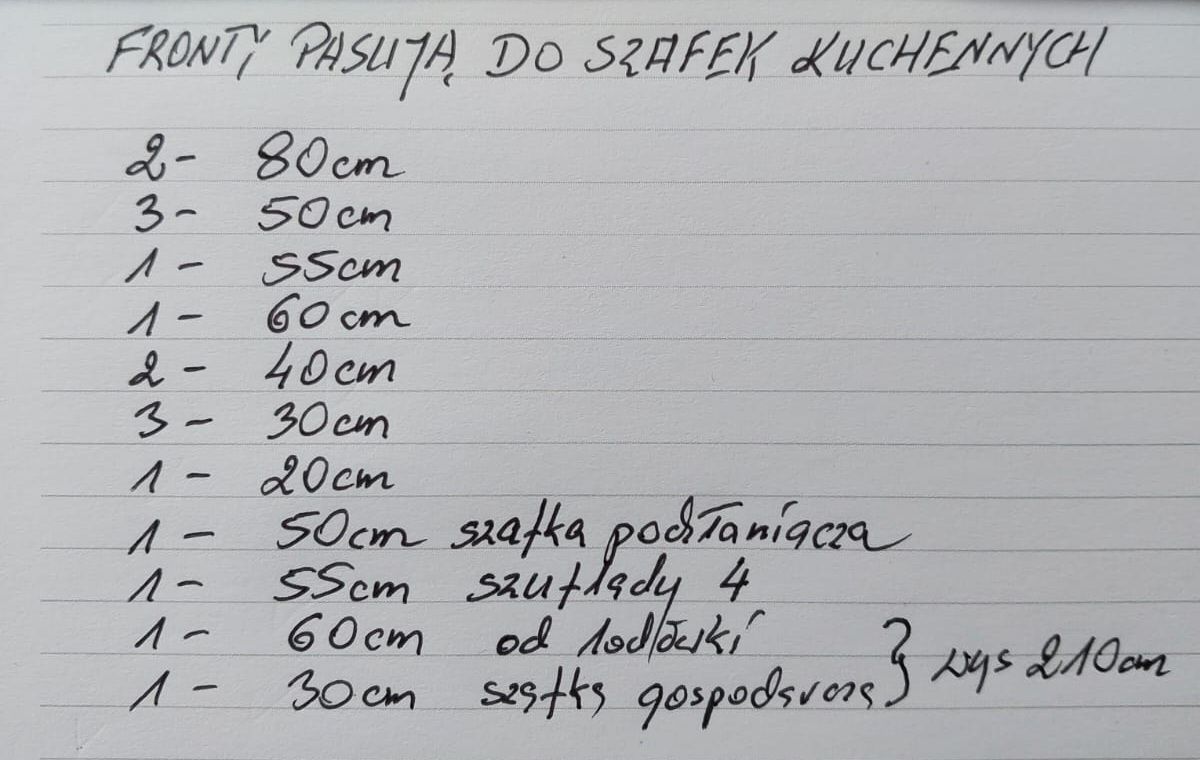 FRONTY PASUJĄ DO SZAFEK KUCHENNYCH
2- 80cm
3- 50cm
1- 55cm
1- 60cm
2- 40cm
3- 30cm
1- 20cm
1- 50cm szafka pochłaniacza
1- 55cm szuflady 4
1- 60cm od lodówki
1- 30cm szafka gospodarcza } wys 210cm